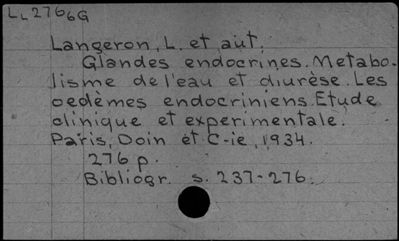 LL276 6G
Langeron, L. et aut.
Glandes endocrines. Metabo-
lisme de l'eau et diurèse. Les
oedèmes endocriniens. Etude
clinique et experimentale.
Paris, Doin et C-ie, 1934.
276 p.
Bibliogr. s. 237-276.